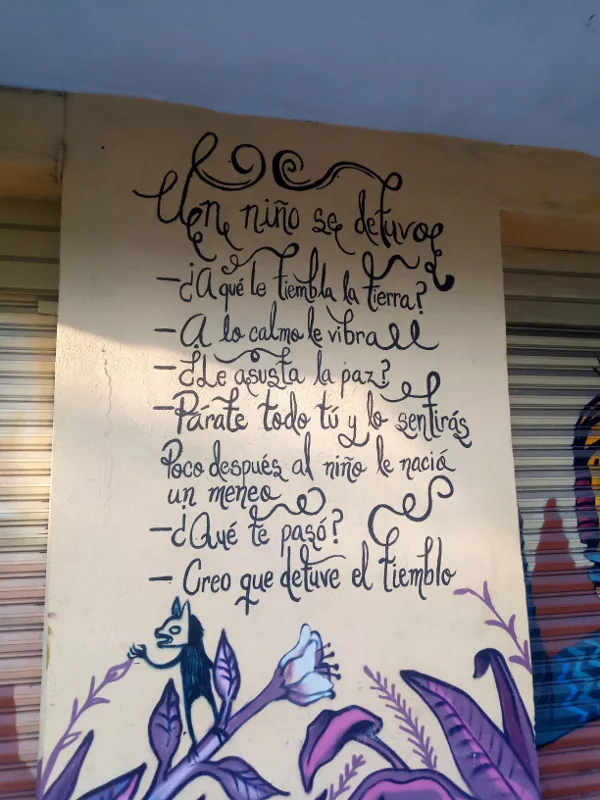 Un niño se detuvo
—¿A qué le tiembla la tierra?
—A lo calmo le vibra
—¿Le asusta la paz?
—Párate todo tú y lo sentirás
Poco después al niño le nació
un meneo
—¿Qué te pasó?
— Creo que detuve el tiemblo